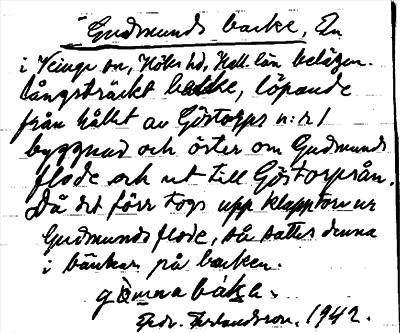 Gudmunds backe, En
i Veinge sn, Höks hd, Hall. län belägen.
långsträckt backe, löpande
från hållet av Göstorps n:r 1
byggnad och öster om Gudmunds
flode och ut till Göstorpsån.
Då det förr togs upp klapptorv ur
Gudmunds flode, så sattes denna
i bänkar på backen.
Fredr. 1942.